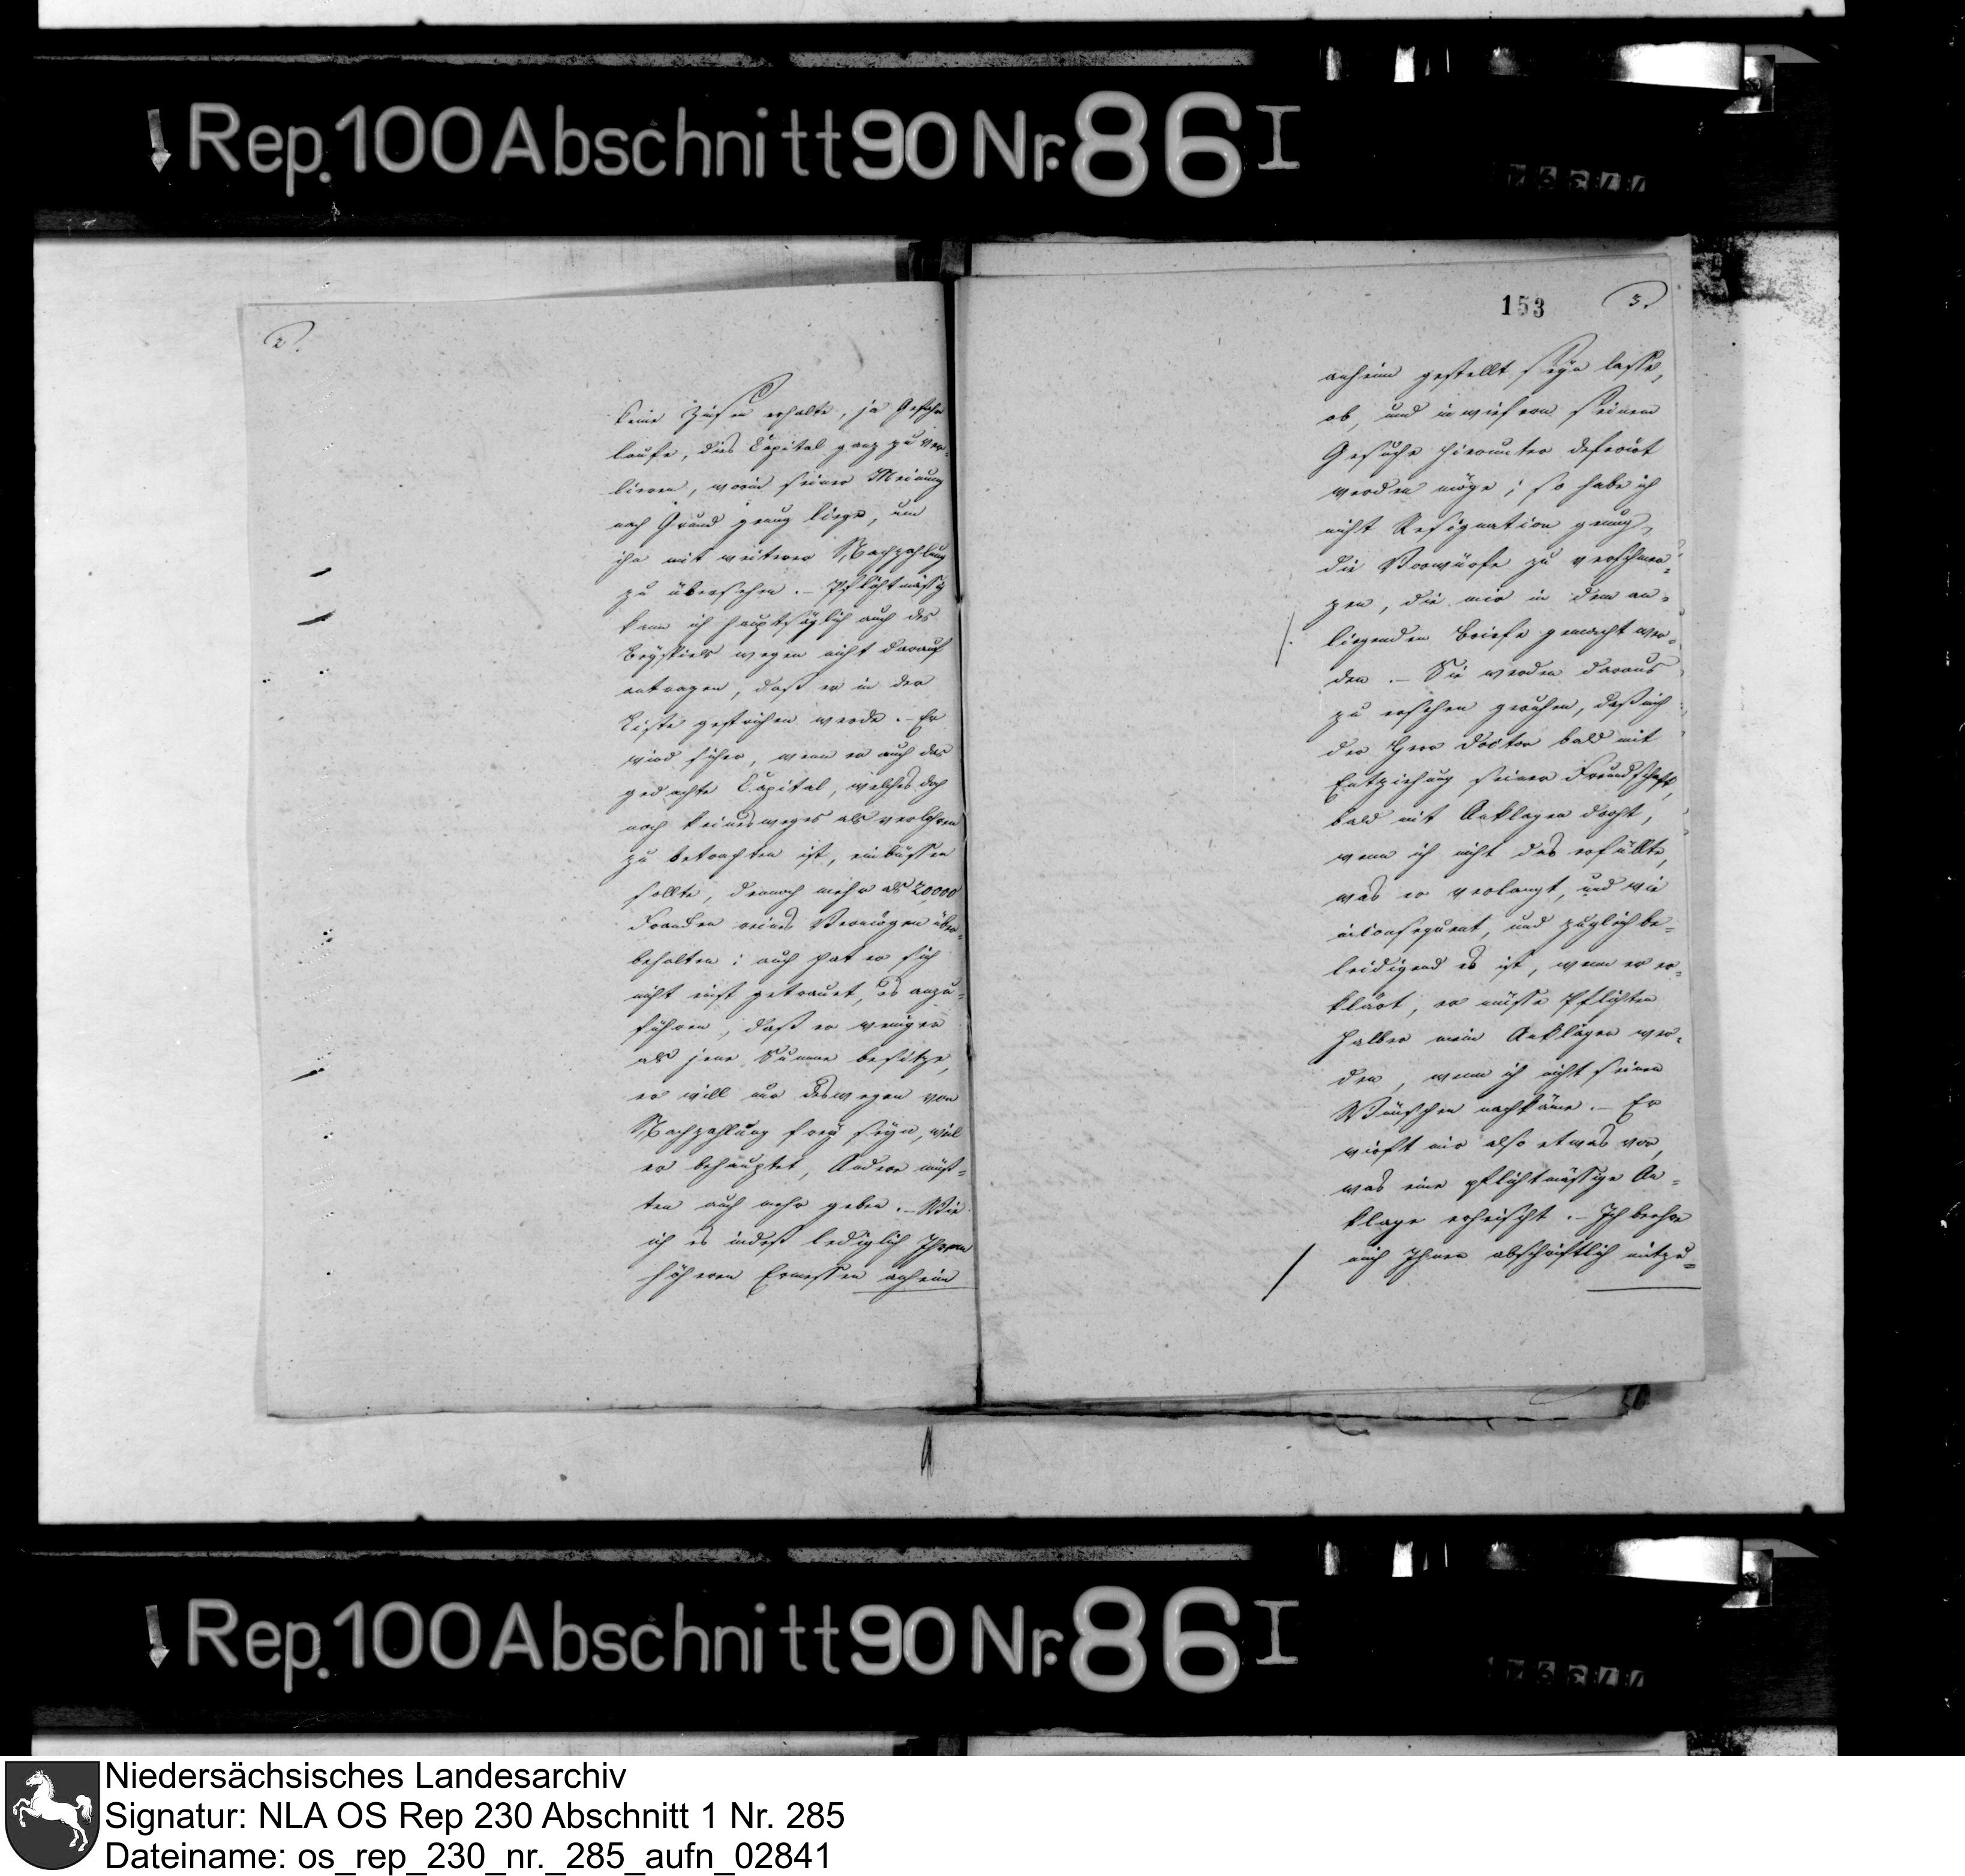 Rep. 100 Abschnitt 90 Nr. 86 I
2.
keine Zinsen erhalte, ja Gefahr
laufe, dies Capital ganz zu ver-
lieren, worin seiner Meinung
nach Grund genug liege, um
ihn mit weiterer Nachzahlung
zu übersehen. – Pflichtmässig
kann ich hauptsächlich auch des
Beyspiels wegen nicht darauf
antragen, daß er in der
Liste gestrichen werde. – Er
wird sicher, wenn er auch das
gedachte Capital, welches doch
noch keinesweges als verlohren
zu betrachten ist, einbüssen
sollte, dennoch mehr als 20,000
Franken reines Vermögen über-
behalten; auch hat er sich
nicht einst getrauet, es anzu-
führen, daß er weniger
als jene Summe besitze,
er will nur deswegen von
Nachzahlung frey seyn, weil
er behauptet, Andere müß-
ten auch mehr geben. – Wie
ich es indeß lediglich Ihrem
höheren Ermessen anheim
153
3.
anheim gestellt seyn lasse,
ob, und inwiefern seinem
Gesuche hierunter deferirt
werden möge; so habe ich
nicht Resignation genug,
die Vorwürfe zu verschmer-
zen, die mir in dem an-
liegenden Briefe gemacht wer-
den. – Sie werden daraus
zu ersehen geruhen, daß mich
der Herr Doctor bald mit
Entziehung seiner Freundschaft,
bald mit Anklagen droht,
wenn ich nicht das erfüllte,
was er verlangt, und wie
inconsequent, und zugleich be-
leidigend es ist, wenn er er-
klärt, er müsse Pflichten
halber mein Ankläger wer-
den, wenn ich nicht seinen
Wünschen nachkäme. – Er
wirft mir also etwas vor,
was eine pflichtmässige An-
klage erheischt. – Ich beehre
mich Ihnen abschriftlich mitzu-
Rep. 100 Abschnitt 90 Nr. 86 I
Niedersächsisches Landesarchiv
Signatur: NLA OS Rep 230 Abschnitt 1 Nr. 285
Dateiname: os_rep_230_nr._285_aufn_02841